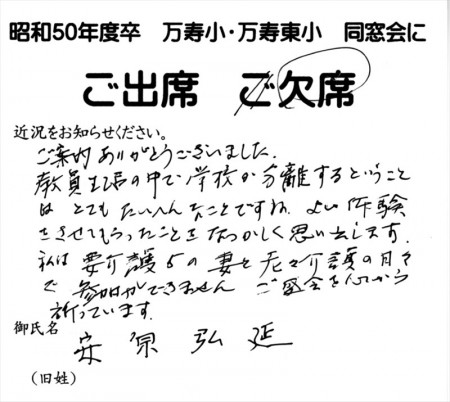 昭和50年度卒 万寿小・万寿東小 同窓会に
ご出席 ご欠席
近況をお知らせください。
ご案内ありがとうございました。
教員生活の中で学校が分離するということ
はとてもたいへんなことですね。よい体験
をさせてもらったことをなつかしく思い出します。
私は要介護5の妻と 介護の日々
で参加ができません ご盛会を心から
祈っています。
御氏名
安原弘延
(旧姓)